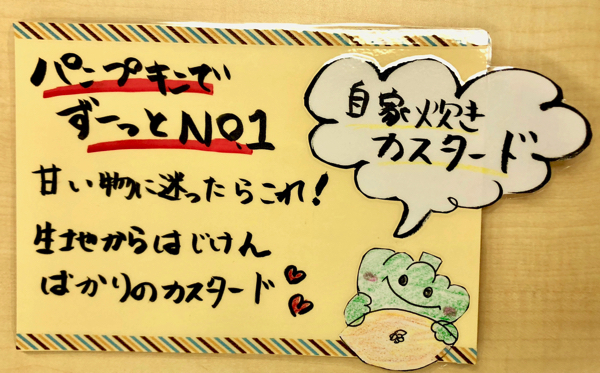 パンプキンで
ずーっとNO,1
甘い物に迷ったらこれ!
生地からはじけん
ばかりのカスタード
自家炊き
カスタード